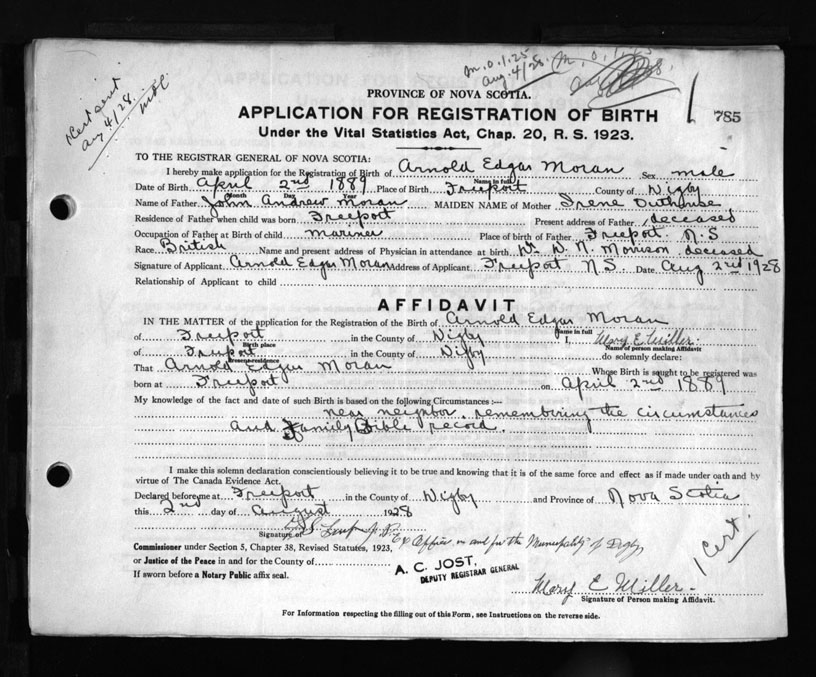 Cert sent
Aug 4/28.
m.o. 1.25
Aug. 4/28.
m. o. 1.25
PROVINCE OF NOVA SCOTIA.
APPLICATION FOR REGISTRATION OF BIRTH
785
Under the Vital Statistics Act, Chap. 20, R. S. 1923.
TO THE REGISTRAR GENERAL OF NOVA SCOTIA:
I hereby make application for the Registration of Birth of Arnold Edgar Moran Sex male
Name in full
Date of Birth April 2nd 1889 Place of Birth Freeport County of Digby
Month Day Year
Name of Father John Andrew Moran MAIDEN NAME of Mother Irene Outhouse
Residence of Father when child was born Freeport Present address of Father deceased
Occupation of Father at Birth of child mariner Place of birth of Father Freeport N.S
Race British Name and present address of Physician in attendance at birth Dr. D. N. Morrison deceased
Signature of Applicant Arnold Edgar Moran Address of Applicant Freeport N.S. Date Aug 2nd 1928
Relationship of Applicant to child
AFFIDAVIT
IN THE MATTER of the application for the Registration of the Birth of Arnold Edgar Moran
Name in full
of Freeport in the County of Digby I, Mary E. Miller
Birth place Name of person making Affidavit
of Freeport in the County of Digby do solemnly declare:
Present residence
That Arnold Edgar Moran Whose Birth is sought to be registered was
born at Freeport on April 2nd 1889
My knowledge of the fact and date of such Birth is based on the following Circumstances :—
near neighbor. remembering the circumstances
and Family Bible record.
I make this solemn declaration conscientiously believing it to be true and knowing that it is of the same force and effect as if made under oath and by
virtue of The Canada Evidence Act.
Declared before me at Freeport in the County of Digby and Province of Nova Scotia
this 2nd day of August 1928
Signature of J.P. Ex Officio in and for the Municipality of Digby
Commissioner under Section 5, Chapter 38, Revised Statutes, 1923,
or Justice of the Peace in and for the County of
If sworn before a Notary Public affix seal.
A. C. JOST,
DEPUTY REGISTRAR GENERAL
1 Cert.
Mary E Miller.
Signature of Person making Affidavit.
For Information respecting the filling out of this Form, see Instructions on the reverse side.